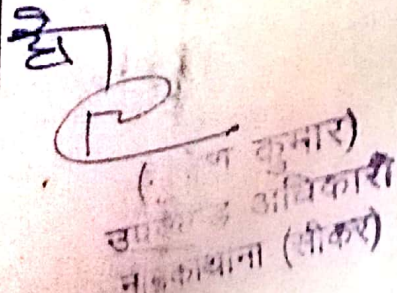 है
कुमार)
उपखण्ड अधिकारी
नीमकाथाना (सीकर)